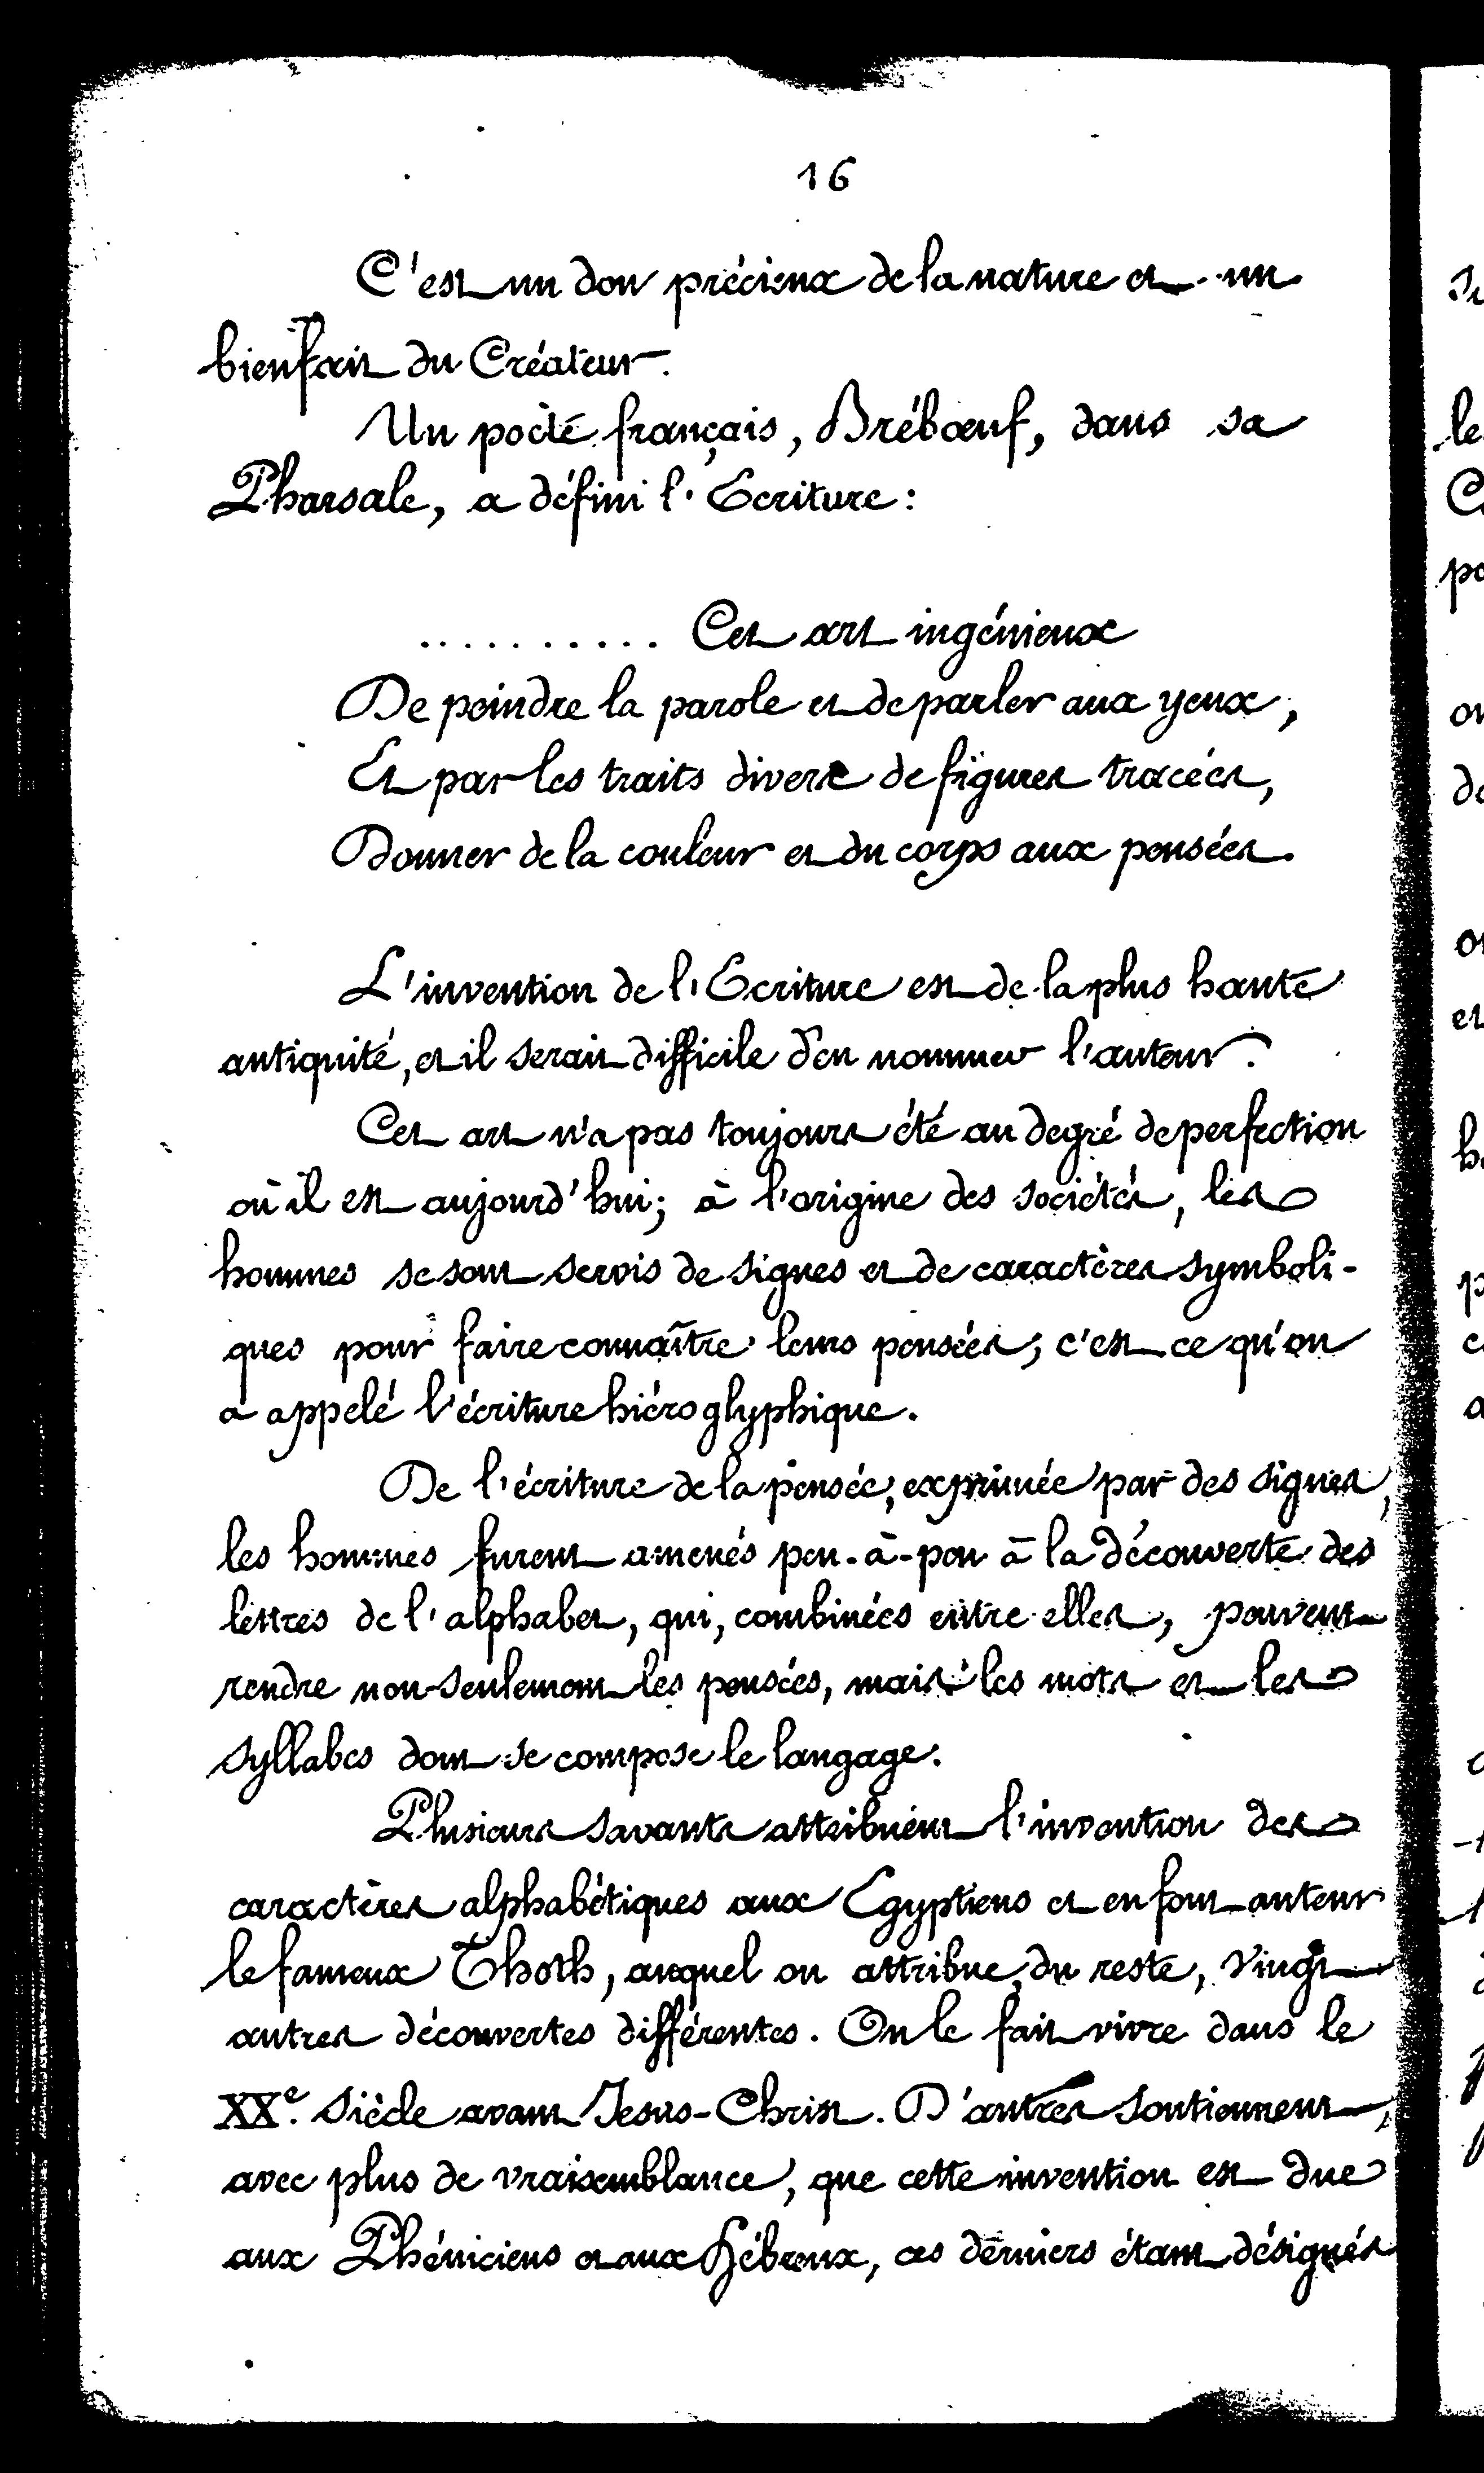 16
C'est un don précieux de la nature et un
bienfait du Créateur.
Un poète français, Brébœuf, dans sa
Pharsale, a défini l'Ecriture :
.......... Cet art ingénieux
De peindre la parole et de parler aux yeux,
Et par les traits divers de figures tracées,
Donner de la couleur et du corps aux pensées.
L'invention de l'Ecriture est de la plus haute
antiquité, et il serait difficile d'en nommer l'auteur.
Cet art n'a pas toujours été au degré de perfection
où il est aujourd'hui; à l'origine des sociétés, les
hommes se sont servis de signes et de caractères symboli-
ques pour faire connaître leurs pensées; c'est ce qu'on
a appelé l'écriture hiéroglyphique.
De l'écriture de la pensée, exprimée par des signes,
les hommes furent amenés peu-à-peu à la découverte des
lettres de l'alphabet, qui, combinées entre elles, peuvent
rendre non-seulement les pensées, mais les mots et les
syllabes dont se compose le langage.
Plusieurs savants attribuent l'invention des
caractères alphabétiques aux Egyptiens et en font auteur
le fameux Thoth, auquel on attribue, du reste, vingt
autres découvertes différentes. On le fait vivre dans le
XXe. siècle avant Jesus-Christ. D'autres soutiennent,
avec plus de vraisemblance, que cette invention est due
aux Phéniciens et aux Hébreux, ces derniers étant désignés